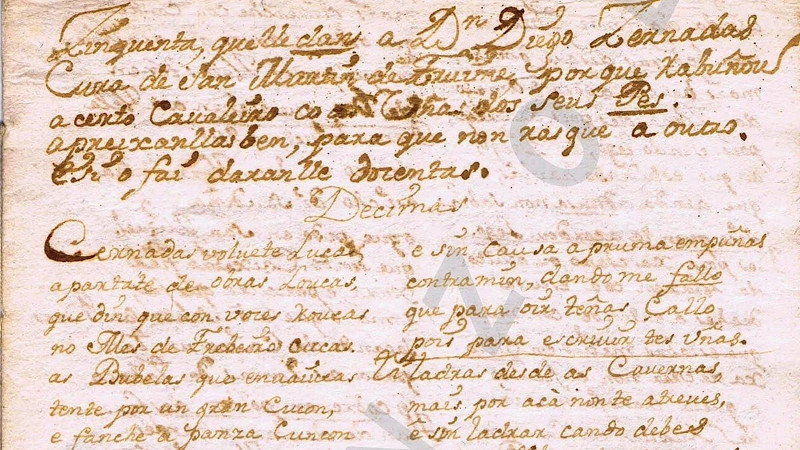 Zinquenta, quelle dans a Dn Diego Zernadas
Cura de San Martin de Fruime, por que rabuñou
a certo Cavaleiro co as Uñas dos seus Pes.
apreixanllas ben, para que non rasque a outro.
e si o fai daranlle docentas.
Decimas
Cernadas volvete Lucas,
apartate de obras Loucas,
que din que con voces roucas
no Mes de Frebeiro cucas.
as Bubelas que envaucas
tente por un gran Cucon,
e fanche a panza Cuncon
e sin causa a pruma empuñas
contra min, dando me fallo
que para oir, teñas Callo
pois para escrivir tes uñas.
Ladras desde as Cavernas,
mais por acà non te atreves,
e sin ladrar cando debes